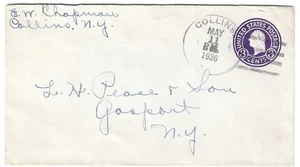 E. W. Chapman
Collins, N.Y.
COLLINS
MAY
11
1936
UNITED STATES POSTAGE
3 CENTS 3
L. H. Pease & Son
Gasport
N.Y.